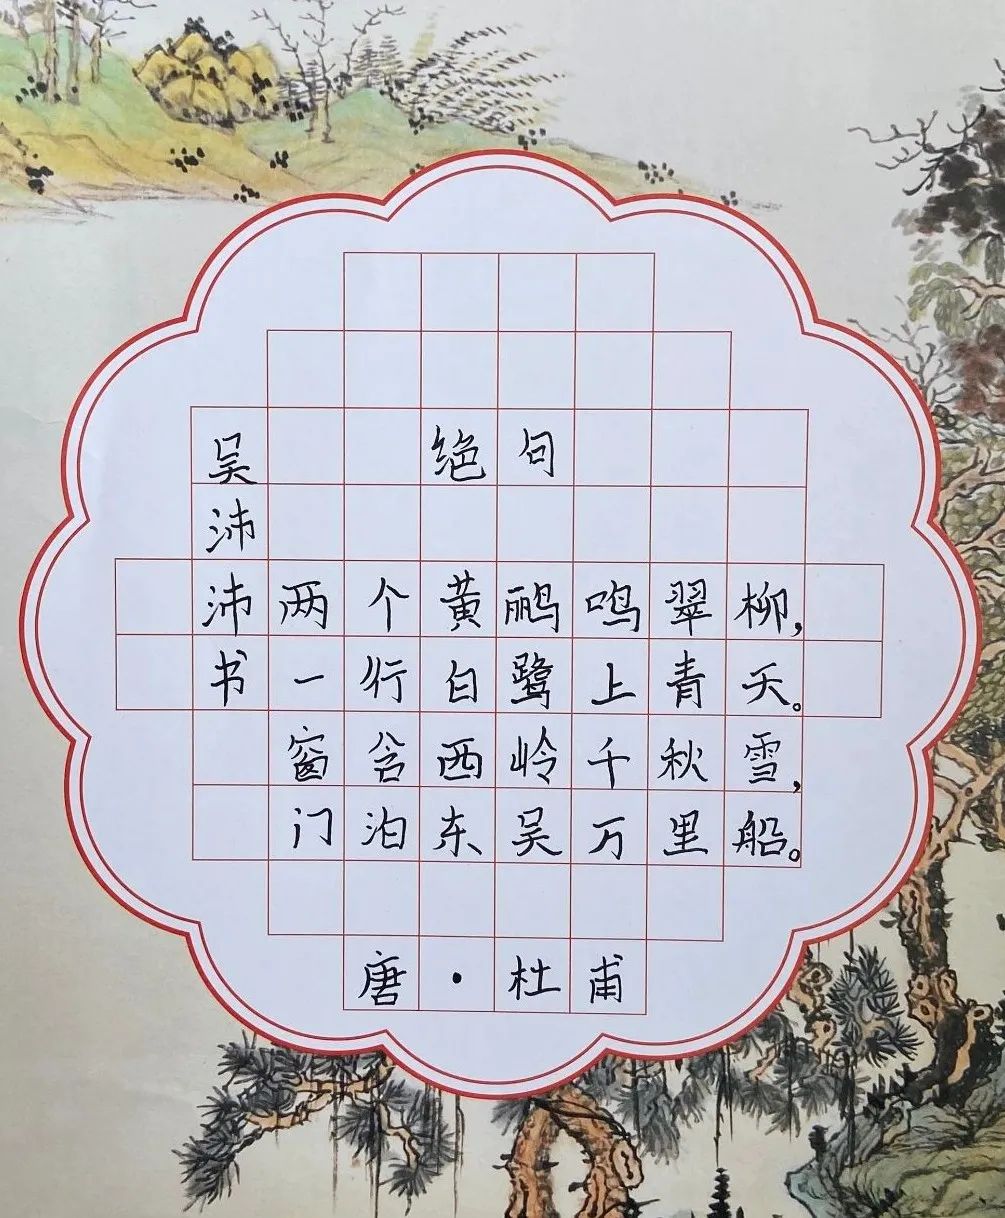 绝句
两个黄鹂鸣翠柳，
一行白鹭上青天。
窗含西岭千秋雪，
门泊东吴万里船。
唐·杜甫
吴沛沛书